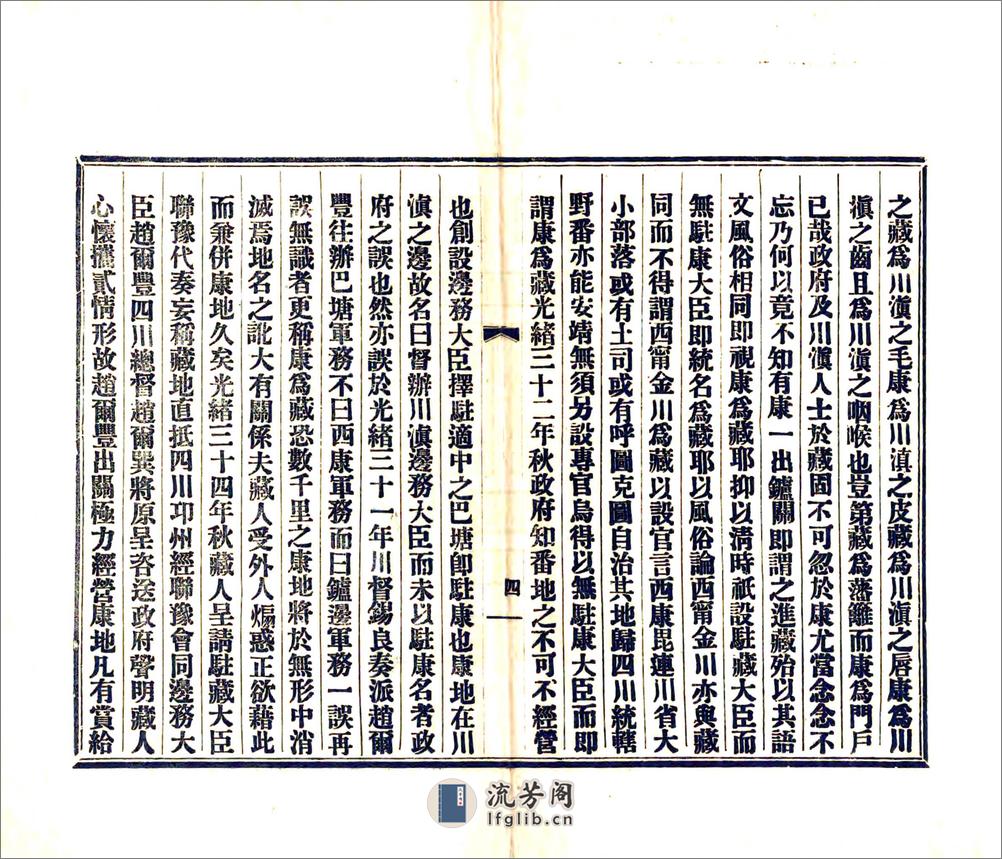 之藏爲川滇之毛康爲川滇之皮藏爲川滇之唇康爲川
滇之齒且爲川滇之咽喉也豈第藏爲藩籬而康爲門戶
已哉政府及川滇人士於藏固不可忽於康尤當念念不
忘乃何以竟不知有康一出鑪關即謂之進藏殆以其語
文風俗相同即視康爲藏耶抑以淸時祇設駐藏大臣而
無駐康大臣即統名爲藏耶以風俗論西甯金川亦與藏
同而不得謂西甯金川爲藏以設官言西康毘連川省大
小部落或有土司或有呼圖克圖自治其地歸四川統轄
野番亦能安靖無須另設專官烏得以無駐康大臣而即
謂康爲藏光緒三十二年秋政府知番地之不可不經營
四
也創設邊務大臣擇駐適中之巴塘卽駐康也康地在川
滇之邊故名曰督辦川滇邊務大臣而未以駐康名者政
府之誤也然亦誤於光緒三十一年川督錫良奏派趙爾
豐往辦巴塘軍務不曰西康軍務而曰鑪邊軍務一誤再
誤無識者更稱康爲藏恐數千里之康地將於無形中消
滅焉地名之訛大有關係夫藏人受外人煽惑正欲藉此
而兼併康地久矣光緒三十四年秋藏人呈請駐藏大臣
聯豫代奏妄稱藏地直抵四川邛州經聯豫會同邊務大
臣趙爾豐四川總督趙爾巽將原呈咨送政府聲明藏人
心懷攜貳情形故趙爾豐出關極力經營康地凡有賞給
流芳阁
lfglib.cn